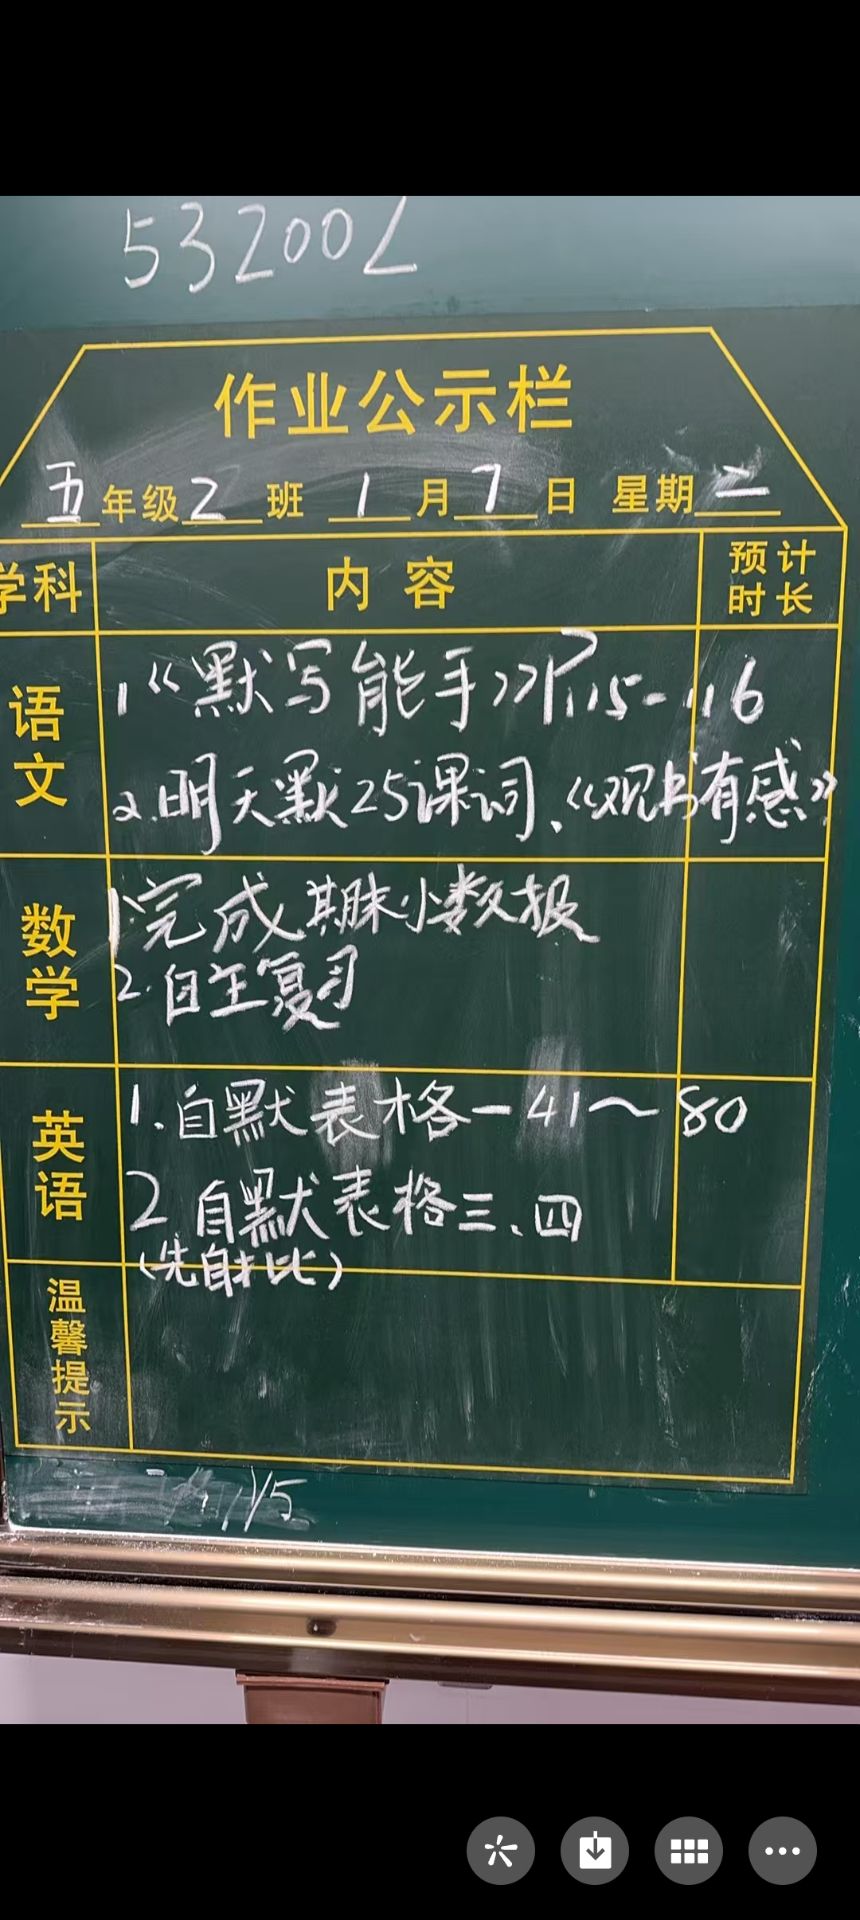 532002
作业公示栏
五年级2班 1月7日 星期二
学科 内容 预计时长
语文
1《默写能手》P115-116
2.明天默25课词、《观书有感》
数学
1.完成期末小数报
2.自主复习
英语
1.自默表格一41～80
2 自默表格三、四
(先自批)
温馨提示